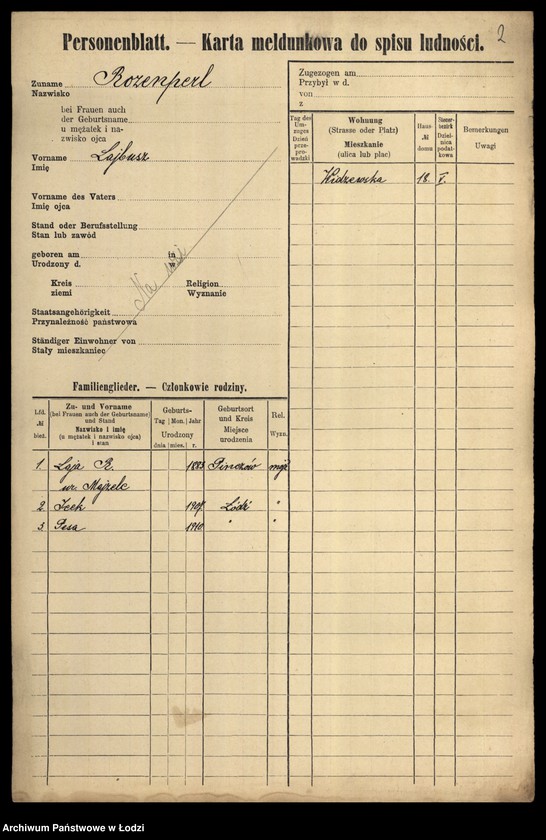 2
Personenblatt. — Karta meldunkowa do spisu ludności.
Zuname Rozenperl
Nazwisko
bei Frauen auch
der Geburtsname
u mężatek i na-
zwisko ojca
Vorname Lajbusz
Imię
Vorname des Vaters
Imię ojca
Stand oder Berufsstellung
Stan lub zawód
geboren am in
Urodzony d. w
Na wsi
Kreis Religion
ziemi Wyznanie
Staatsangehörigkeit
Przynależność państwowa
Ständiger Einwohner von
Stały mieszkaniec
Zugezogen am
Przybył w d.
von
z
Tag des Um-zuges Dzień prze-pro-wadzki
Wohnung (Strasse oder Platz) Mieszkanie (ulica lub plac)
Haus-№ domu
Steuer-bezirk Dziel-nica podat-kowa
Bemerkungen Uwagi
Widzewska 18. V.
Familienglieder. — Członkowie rodziny.
Lfd. № bież.
Zu- und Vorname (bei Frauen auch der Geburtsname) und Stand Nazwisko i imię (u mężatek i nazwisko ojca) i stan
Geburts- Tag Mon. Jahr Urodzony dnia mies. r.
Geburtsort und Kreis Miejsce urodzenia
Rel. Wyzn.
1. Łaja R. 1883 Pinczów mojż
ur. Majzelc
2. Icek 1907 Łódź "
3. Pesa 1910 " "
Archiwum Państwowe w Łodzi